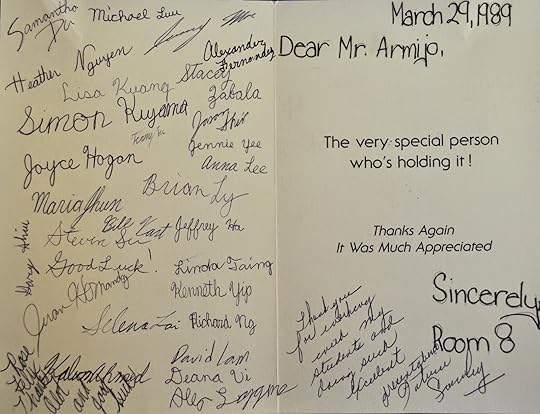 Samantha
Du
Michael Luu
Heather Nguyen
Alexander
Fernandez
Lisa Kuang
Stacey
Zabala
Simon Kiyama
Jason
Shir
Jennie Yee
Joyce Hogan
Anna Lee
Brian Ly
Maria Jhun
Bill Kast
Jeffrey Ha
Steven Su
Gary Shiu
Good Luck!
Linda Taing
Kenneth Yip
Selena Lai
Richard Ng
David Lam
Deana Vi
Kalvon Ahmed
Alex
Rose
and
good
luck
March 29, 1989
Dear Mr. Armijo,
The very special person
who's holding it!
Thanks Again
It Was Much Appreciated
Sincerely,
Room 8
Thank you
for working
with my
students and
doing such
excellent